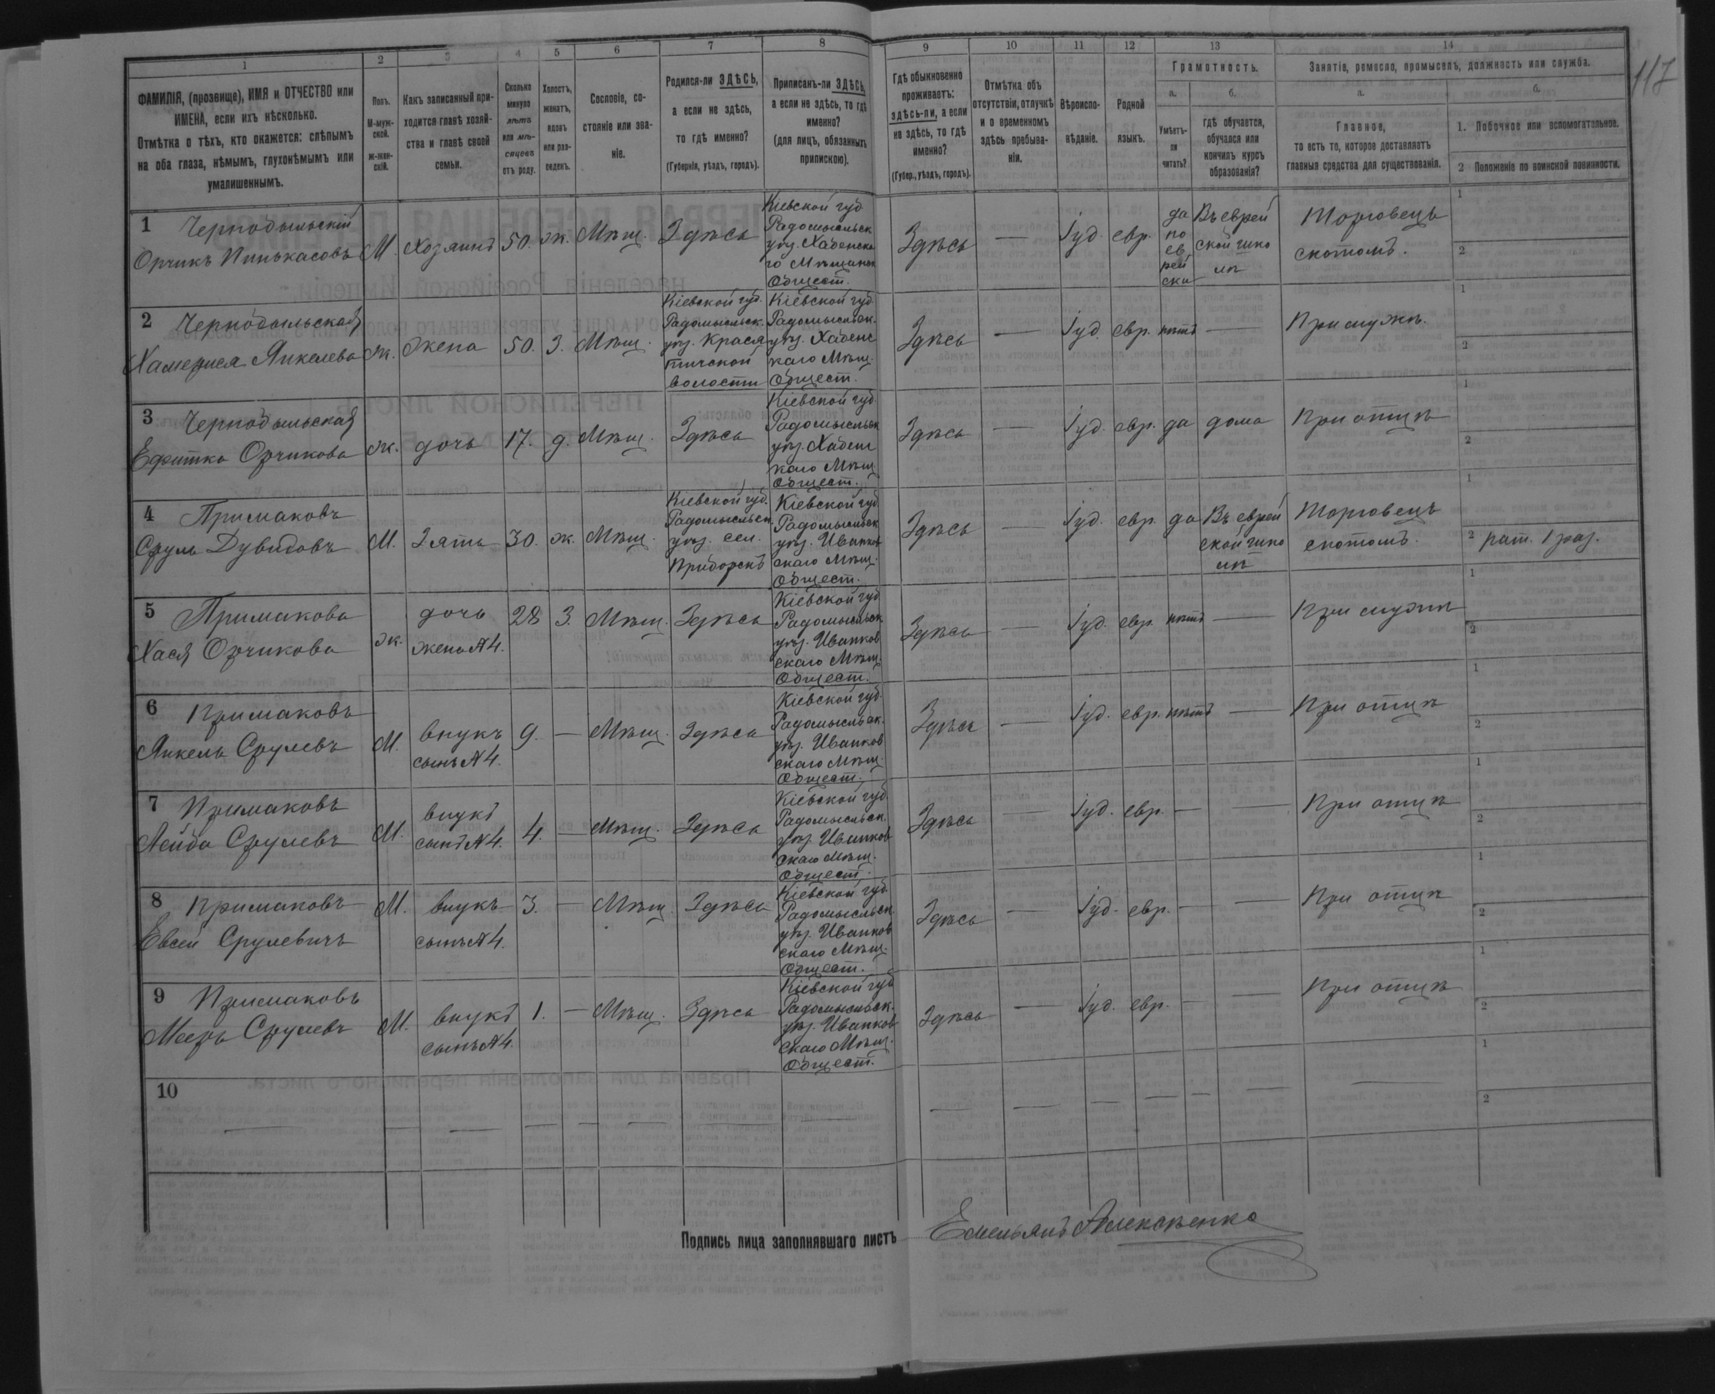 117
1 2 3 4 5 6 7 8 9 10 11 12 13 14
ФАМИЛІЯ, (прозвище), ИМЯ и ОТЧЕСТВО или
ИМЕНА, если ихъ нѣсколько.
Отмѣтка о тѣхъ, кто окажется: слѣпымъ
на оба глаза, нѣмымъ, глухонѣмымъ или
умалишеннымъ.
Полъ.
М-муж-
ской.
ж-жен-
скій.
Какъ записанный при-
ходится главѣ хозяй-
ства и главѣ своей
семьи.
Сколько
минуло
лѣтъ
или мѣ-
сяцевъ
отъ роду.
Холостъ,
женатъ,
вдовъ
или раз-
веденъ.
Сословіе, со-
стояніе или зва-
ніе.
Родился-ли ЗДѢСЬ,
а если не здѣсь,
то гдѣ именно?
(Губернія, уѣздъ, городъ).
Приписанъ-ли ЗДѢСЬ,
а если не здѣсь, то гдѣ
именно?
(для лицъ, обязанныхъ
припискою).
Гдѣ обыкновенно
проживаетъ:
здѣсь-ли, а если
не здѣсь, то гдѣ
именно?
(Губер., уѣздъ, городъ).
Отмѣтка объ
отсутствіи, отлучкѣ
и о временномъ
здѣсь пребыва-
ніи.
Вѣроиспо-
вѣданіе.
Родной
языкъ.
Грамотность.
а.
Умѣетъ-
ли
читать?
б.
гдѣ обучается,
обучался или
кончилъ курсъ
образованія?
Занятіе, ремесло, промыселъ, должность или служба.
а.
Главное,
то есть то, которое доставляетъ
главныя средства для существованія.
б.
1. Побочное или вспомогательное.
2 Положеніе по воинской повинности.
1 Чернобыльскій
Орчикъ Пинькасовъ
М. хозяинъ 50. ж. Мѣщ. Здѣсь
Кіевской губ
Радомысльск
уѣз. Хабенска
го Мѣщанск
Общест.
Здѣсь — Іуд. евр.
да
по
ев
рей
ски
Въ еврей
ской шко
лѣ
Торговецъ
скотомъ.
1
2
2 Чернобыльская
Янкелева
ж. жена 50. З. Мѣщ.
Кіевской губ.
Радомысльск.
уѣз.
волости
Кіевской губ
Радомысльск.
уѣз. Хабенс
каго Мѣщ.
Общест.
Здѣсь — Іуд. евр. нѣтъ — При мужѣ.
1
2
3 Чернобыльская
Орчикова
ж. дочь 17. д. Мѣщ. Здѣсь
Кіевской губ
Радомысльск
уѣз. Хабенс
каго Мѣщ
Общест.
Здѣсь — Іуд. евр. да дома При отцѣ
1
2
4 Примаковъ
Сруль Дувидовъ
М. Зять 30. ж. Мѣщ.
Кіевской губ.
Радомысльск
уѣз. сел.
Приборскъ
Кіевской губ
Радомысльск
уѣз. Иванков
скаго Мѣщ.
Общест.
Здѣсь — Іуд. евр. да
Въ еврей
ской шко
лѣ
Торговецъ
скотомъ.
1
2 рат. 1 раз.
5 Примакова
Хася Орчикова
ж. дочь
жена №4.
28 З. Мѣщ. Здѣсь
Кіевской губ
Радомысльск
уѣз. Иванков
скаго Мѣщ.
Общест.
Здѣсь — Іуд. евр. нѣтъ — При мужѣ
1
2
6 Примаковъ
Янкель Срулевъ
М. внукъ
сынъ №4.
9. — Мѣщ. Здѣсь
Кіевской губ.
Радомысльск.
уѣз. Иванков
скаго Мѣщ.
Общест.
Здѣсь — Іуд. евр. нѣтъ — При отцѣ
1
2
7 Примаковъ
Лейба Срулевъ
М. внукъ
сынъ №4.
4. — Мѣщ. Здѣсь
Кіевской губ.
Радомысльск.
уѣз. Иванков
скаго Мѣщ.
Общест.
Здѣсь — Іуд. евр. — — При отцѣ
1
2
8 Примаковъ
Евсей Срулевичъ
М. внукъ
сынъ №4.
3. — Мѣщ. Здѣсь
Кіевской губ
Радомысльск
уѣз. Иванков
скаго Мѣщ.
Общест.
Здѣсь — Іуд. евр. — — При отцѣ
1
2
9 Примаковъ
Мееръ Срулевъ
М. внукъ
сынъ №4.
1. — Мѣщ. Здѣсь
Кіевской губ
Радомысльск.
уѣз. Иванков
скаго Мѣщ.
Общест.
Здѣсь — Іуд. евр. — — При отцѣ
1
2
10
— — — — — — — — — — — — — —
1
2
Подпись лица заполнявшаго листъ Емельянъ Алексѣенко